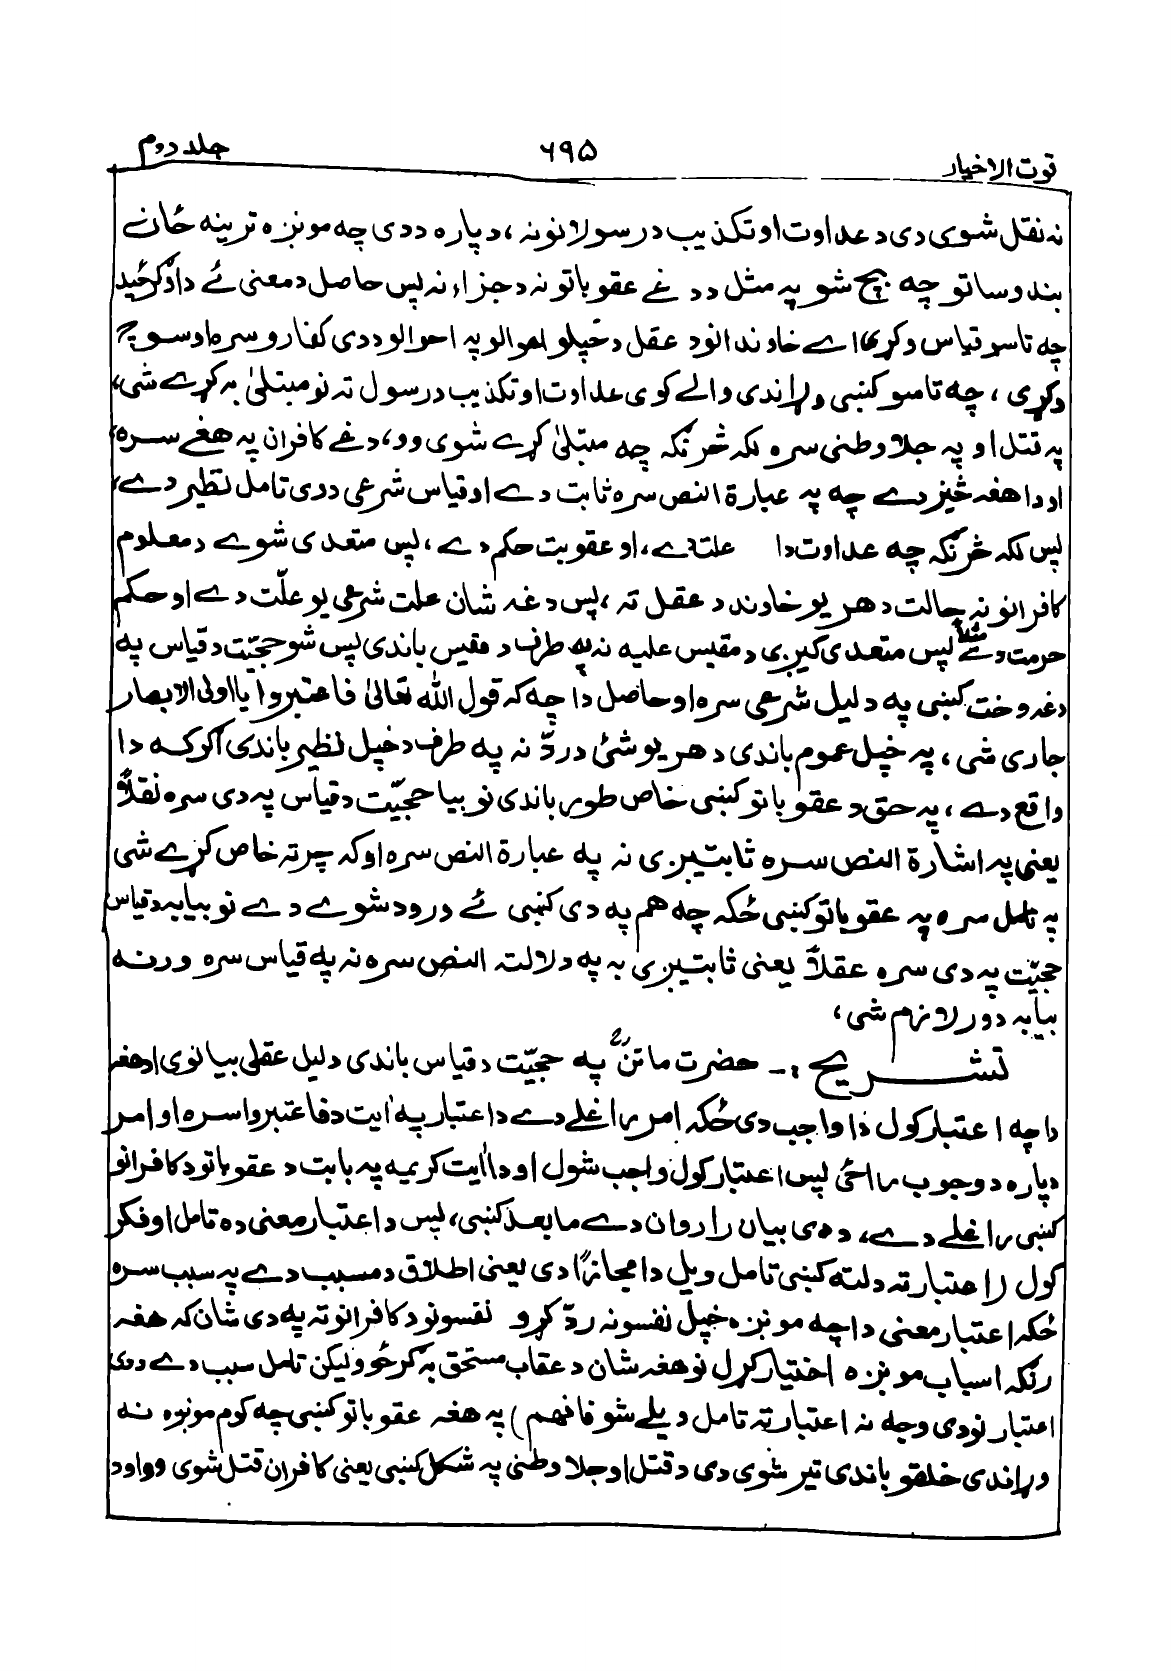 قوت الاخیار ۶۹۵ جلد دوم
نه نقل شوی دی د عداوت او تکذیب د رسولانو نه، دپاره ددی چه مونږه ترینه ځانے
بند وساتو چه بچ شو په مثل ددغے عقوباتو نه د جزاء نه پس حاصل د معنی ئے دا
چه تاسو قیاس وکړی اے خاوندانو د عقل د خپلو احوالو په احوالو ددی کفارو سره او سوچ
وکړی، چه تاسو کښی وړاندی والے کوی عداوت او تکذیب د رسول ته نو مبتلیٰ به کړے شی،
په قتل او په جلا وطنی سره لکه څرنګه چه مبتلیٰ کړے شوی وو، دغے کافران په هغے سره،
او دا هغه څیز دے چه په عبارة النص سره ثابت دے او قیاس شرعی ددی تامل نظیر دے،
پس لکه څرنګه چه عداوت دا علت دے، او عقوبت حکم دے، پس متعدی شوے د معلوم
کافرانو نه حالت د هر یو خاوند د عقل ته، پس دغه شان علت شرعی یو علّت دے او حکم
حرمت دے مثلاً پس متعدی کیږی د مقیس علیه نه په طرف د مقیس باندی پس شو حجیّت د قیاس په
دغه وخت کښی په دلیل شرعی سره او حاصل دا چه که قول الله تعالیٰ فاعتبروا یا اولی الابصار
جاری شی، په خپل عموم باندی د هر یو شئ د ردّ نه په طرف د خپل نظیر باندی اګرکه دا
واقع دے، په حق د عقوباتو کښی خاص طور باندی نو بیا حجیّت د قیاس په دی سره نقلاً
یعنی په اشارة النص سره ثابتیږی نه په عبارة النص سره او که چرته خاص کړے شی
په تامل سره په عقوباتو کښی ځکه چه هم په دی کښی ئے ورود شوے دے نو بیا به د قیاس
حجیّت په دی سره عقلاً یعنی ثابتیږی به په دلالت النص سره نه په قیاس سره ورنه
بیا به دور لازم شی،
تشریح :- حضرت ماتنؒ په حجیّت د قیاس باندی دلیل عقلی بیانوی او هغه
دا چه اعتبار کول دا واجب دی ځکه امر راغلے دے د اعتبار په اٰیت د فاعتبروا سره او امر
دپاره د وجوب راځی پس اعتبار کول واجب شول او دا اٰیت کریمه په بابت د عقوباتو د کافرانو
کښی راغلے دے، ددی بیان را روان دے ما بعد کښی، پس د اعتبار معنی ده تامل او فکر
کول (اعتبار ته دلته کښی تامل ویل دا مجازًا دی یعنی اطلاق د مسبب دے په سبب سره
ځکه اعتبار معنی دا چه مونږه خپل نفسونه ردّ کړو نفسونو د کافرانو ته په دی شان که هغه
رنګه اسباب مونږه اختیار کړل نو هغه شان د عقاب مستحق به ګرځو ولیکن تامل سبب دے ددی
اعتبار نو دی وجه نه اعتبار ته تامل ویلے شو فافهم) په هغه عقوباتو کښی چه کوم مونږه نه
وړاندی خلقو باندی تیر شوی دی د قتل او جلا وطنی په شکل کښی یعنی کافران قتل شوی وو او د